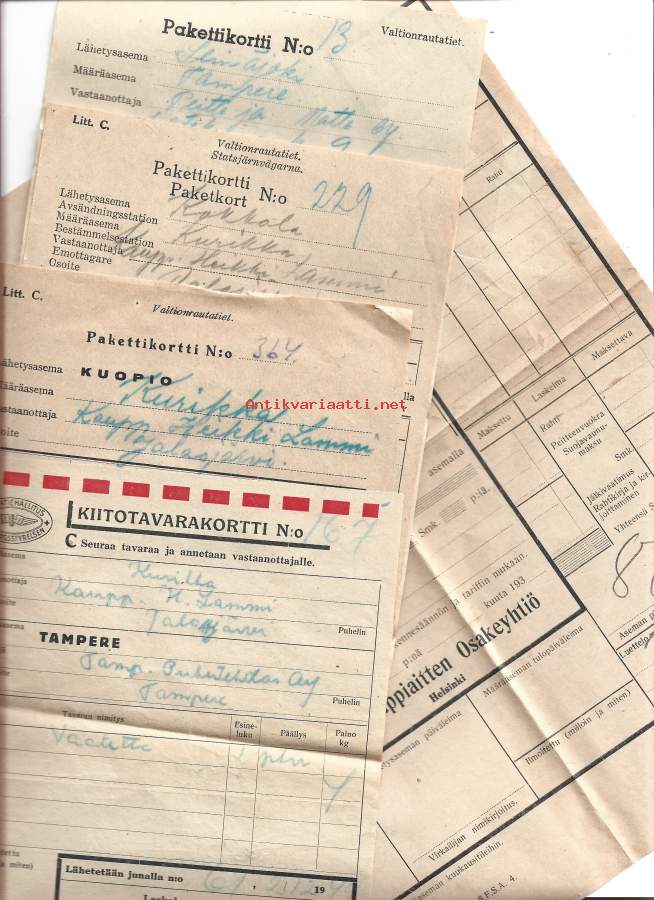 Pakettikortti N:o 13
Valtionrautatiet.
Lähetysasema Seinäjoki
Määräasema Tampere.
Vastaanottaja Matto Oy
Litt. C.
Valtionrautatiet.
Statsjärnvägarna.
Pakettikortti
Paketkort N:o 229
Lähetysasema
Avsändningsstation Kokkola
Määräasema
Bestämmelsestation Kurikka
Vastaanottaja
Emottagare Kaupp. Heikki Lammi
Osoite
Litt. C.
Valtionrautatiet.
Pakettikortti N:o 364
Lähetysasema KUOPIO
Määräasema Kurikka
Vastaanottaja Kaupp. Heikki Lammi
Osoite Jalasjärvi.
Antikvariaatti.net
KIITOTAVARAKORTTI N:o 167
C Seuraa tavaraa ja annetaan vastaanottajalle.
Kurikka
Kaupp. H. Lammi
Jalasjärvi
Puhelin
TAMPERE
Tamp. Pukutehdas Oy
Tampere
Puhelin
Tavaran nimitys
Esine-
luku
Päällys
Paino
kg
Vaatetta 1
Lähetetään junalla n:o
19
Raht
Maksettava
Laskelma
Maksettu
Rahti
Peitteenvuokra
Suojavaunu-
maksu
Smk.
Jälkivaatimus
Rahtikirja ja kir-
joittaminen
Yhteensä S
asemalla
p:ä.
Smk.
kennesäännön ja tariffin mukaan.
p:nä
kuuta 193
ppiaitten Osakeyhtiö
Helsinki
Aseman p
Luettelo
Lähetysaseman päiväleima
Määräaseman tulopäiväleima
Ilmoitettu (milloin ja miten)
Virkailijan nimikirjoitus.
aseman kuukausitileihin.
S.F.S.A. 4.